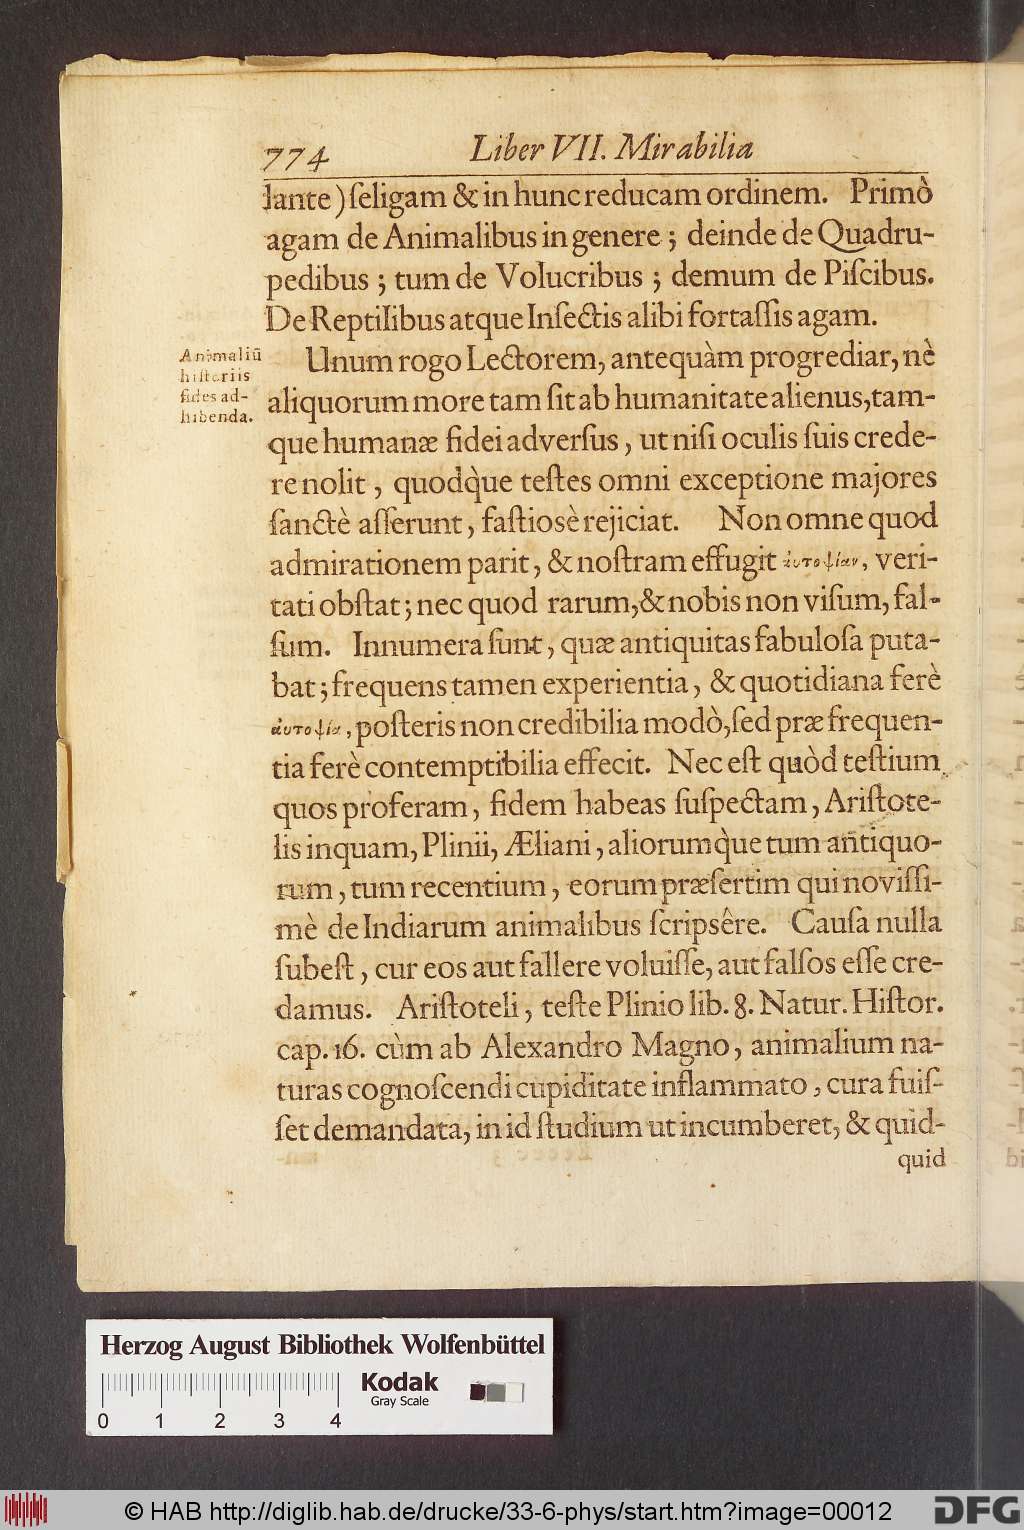 774 Liber VII. Mirabilia
lante) ſeligam & in hunc reducam ordinem. Primò
agam de Animalibus in genere ; deinde de Quadru-
pedibus ; tum de Volucribus ; demum de Piſcibus.
De Reptilibus atque Inſectis alibi fortaſſis agam.
Animaliū
hiſtoriis
fides ad-
hibenda.
Unum rogo Lectorem, antequàm progrediar, nè
aliquorum more tam ſit ab humanitate alienus, tam-
que humanæ fidei adverſus, ut niſi oculis ſuis crede-
re nolit, quodq̀ue teſtes omni exceptione majores
ſanctè aſſerunt, faſtiosè rejiciat. Non omne quod
admirationem parit, & noſtram effugit ἀυτοψίαν, veri-
tati obſtat; nec quod rarum, & nobis non viſum, fal-
ſum. Innumera ſunt, quæ antiquitas fabuloſa puta-
bat; frequens tamen experientia, & quotidiana ferè
ἀυτοψία, poſteris non credibilia modò, ſed præ frequen-
tia ferè contemptibilia effecit. Nec eſt quòd teſtium
quos proferam, fidem habeas ſuſpectam, Ariſtote-
lis inquam, Plinii, Æliani, aliorumq̀ue tum antiquo-
rum, tum recentium, eorum præſertim qui noviſſi-
mè de Indiarum animalibus ſcripsêre. Cauſa nulla
ſubeſt, cur eos aut fallere voluiſſe, aut falſos eſſe cre-
damus. Ariſtoteli, teſte Plinio lib. 8. Natur. Hiſtor.
cap. 16. cùm ab Alexandro Magno, animalium na-
turas cognoſcendi cupiditate inflammato, cura fuiſ-
ſet demandata, in id ſtudium ut incumberet, & quid-
quid
Herzog August Bibliothek Wolfenbüttel
Kodak
Gray Scale
0 1 2 3 4
© HAB http://diglib.hab.de/drucke/33-6-phys/start.htm?image=00012
DFG